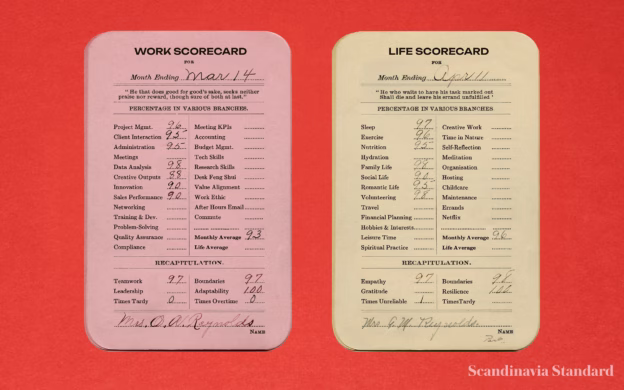 WORK SCORECARD
FOR
Month Ending Mar 14
"He that does good for good's sake, seeks neither
praise nor reward, though sure of both at last."
PERCENTAGE IN VARIOUS BRANCHES.
Project Mgmt. 96 Meeting KPIs
Client Interaction 93 Accounting
Administration 95 Budget Mgmt.
Meetings Tech Skills
Data Analysis 98 Research Skills
Creative Outputs 88 Desk Feng Shui
Innovation 90 Value Alignment
Sales Performance 90 Work Ethic
Networking After Hours Email
Training & Dev. Commute
Problem-Solving
Quality Assurance Monthly Average 93
Compliance Life Average
RECAPITULATION.
Teamwork 97 Boundaries 97
Leadership Adaptability 100
Times Tardy 0 Times Overtime 0
Mrs. O. W. Reynolds
NAME
LIFE SCORECARD
FOR
Month Ending Apr 11
"He who waits to have his task marked out
Shall die and leave his errand unfulfilled"
PERCENTAGE IN VARIOUS BRANCHES
Sleep 97 Creative Work
Exercise 96 Time in Nature
Nutrition 95 Self-Reflection
Hydration Meditation
Family Life 98 Organisation
Social Life 90 Hosting
Romantic Life 95 Childcare
Volunteering 98 Maintenance
Travel Errands
Financial Planning Netflix
Hobbies & Interests
Leisure Time Monthly Average 96
Spiritual Practice Life Average
RECAPITULATION.
Empathy 97 Boundaries 98
Gratitude Resilience 100
Times Unreliable 1 Times Tardy
Mrs Reynolds
NAME
Scandinavia Standard